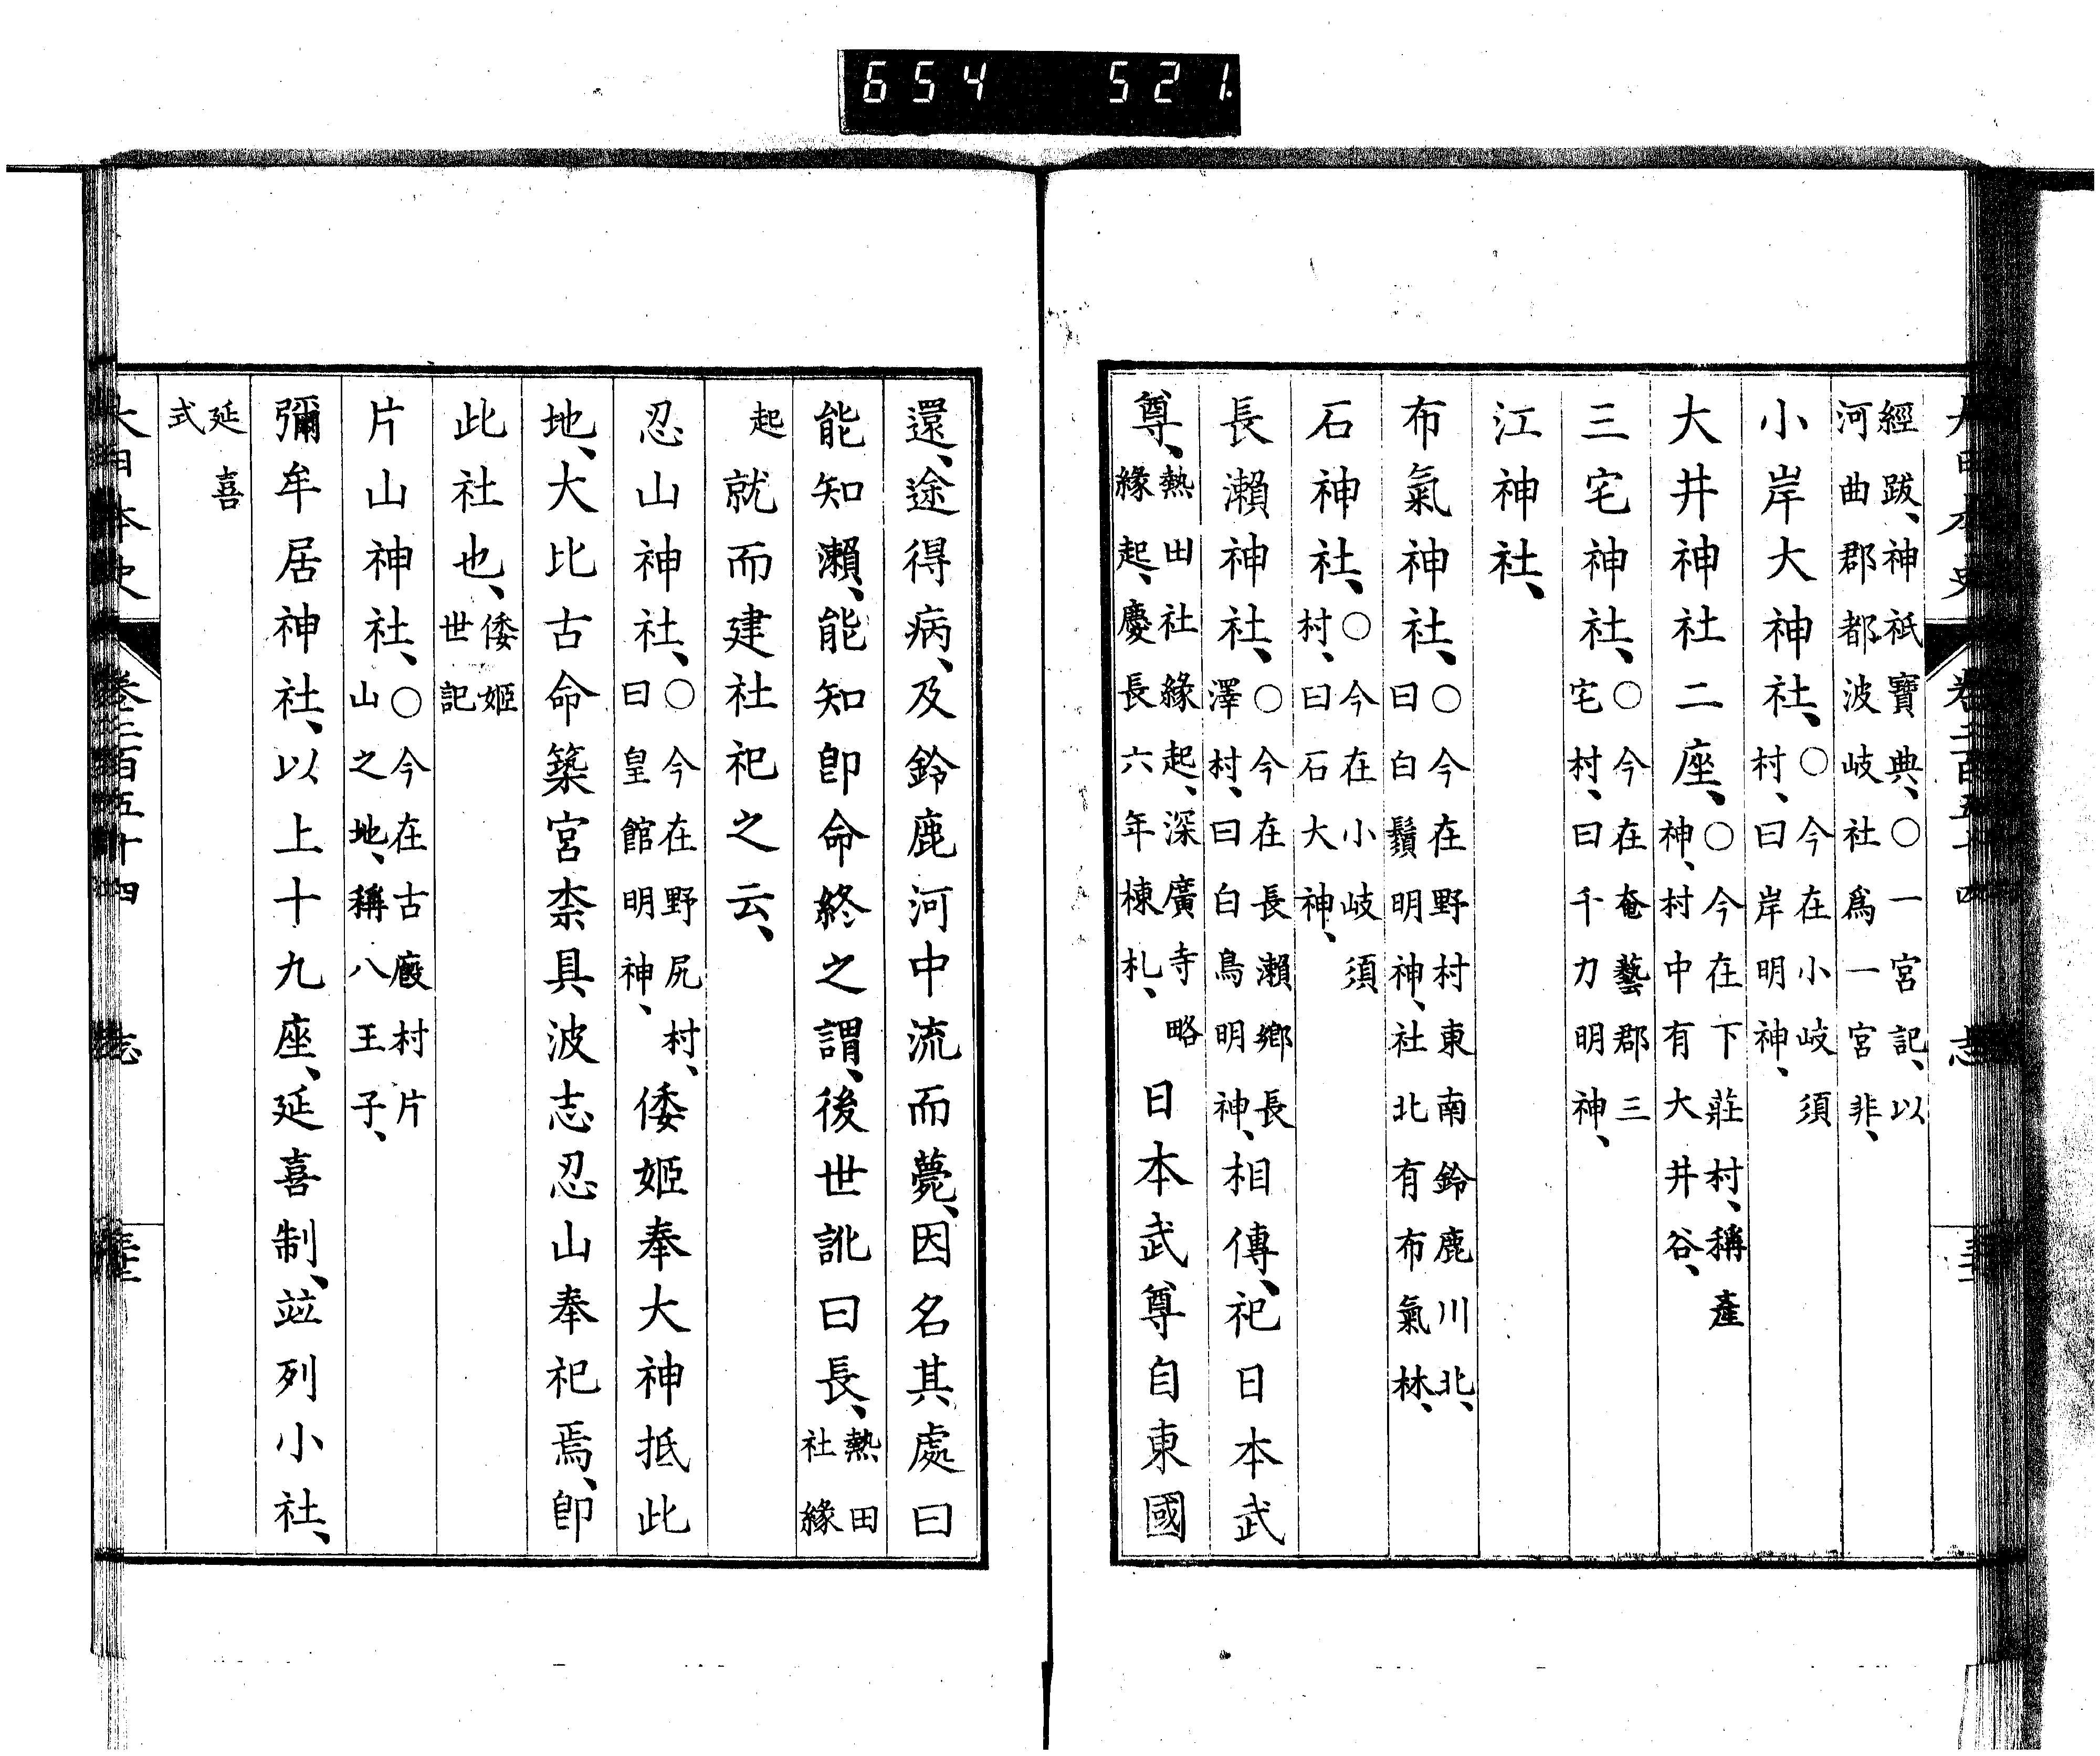 654 521.
大日本史 卷二百五十四 志
經跋、神祇寶典、〇一宮記、以
河曲郡都波岐社爲一宮非、
小岸大神社、〇今在小岐須
村、曰岸明神、
大井神社二座、〇今在下莊村、稱產
神、村中有大井谷、
三宅神社、〇今在奄藝郡三
宅村、曰千力明神、
江神社、
布氣神社、〇今在野村東南鈴鹿川北、
曰白鬚明神、社北有布氣林、
石神社、〇今在小岐須
村、曰石大神、
長瀨神社、〇今在長瀨鄉長
澤村、曰白鳥明神、相傳、祀日本武
尊、熱田社緣起、深廣寺略
緣起、慶長六年棟札、日本武尊自東國
還、途得病、及鈴鹿河中流而薨、因名其處曰
能知瀨、能知卽命終之謂、後世訛曰長、熱田
社緣
起就而建社祀之云、
忍山神社、〇今在野尻村、
曰皇館明神、倭姬奉大神抵此
地、大比古命築宮柰具波志忍山奉祀焉、卽
此社也、倭姬
世記
片山神社、〇今在古廄村片
山之地、稱八王子、
彌牟居神社、以上十九座、延喜制、竝列小社、
延喜
式
大日本史 卷二百五十四 志